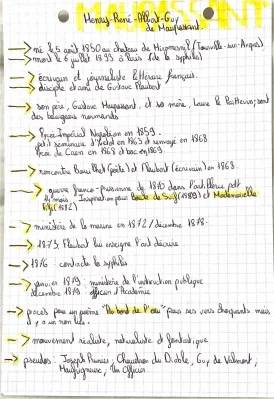 MAUPASSANT
Henry-René-Albert-Guy
de Maupassant.
→ né le 5 août 1850 au château de Miromesnil (Tourville-sur-Arques)
→ mort le 6 juillet 1893 à Paris (de la syphilis)
→ écrivain et journaliste littéraire français.
→ disciple et ami de Gustave Flaubert
→ son père, Gustave Maupassant, et sa mère, Laure le Poittevin; sont
des bourgeois normands
→ lycée Impérial Napoléon en 1859.
petit séminaire d'Yvetot en 1863 et renvoyé en 1868
lycée de Caen en 1868 et bac en 1869.
→ rencontre Bouilhet (poète) et Flaubert (écrivain) en 1868.
→ guerre franco-prussienne de 1870 dans l'artillerie pdt
mois. Inspiration pour Boule de Suif (1880) et Mademoiselle
Fifi (1882)
→ ministère de la marine en 1872/décembre 1878.
→ 1873 Flaubert lui enseigne l'art d'écrire
→ 1876 contracte la syphilis
→ janvier 1879 ministère de l'instruction publique
décembre 1879 officier d'Académie
→ procès pour un poème "Au bord de l'eau" pour ses vers choquants mais
il y a un non lieu.
→ mouvement réaliste, naturaliste et fantastique
→ pseudos: Joseph Prunier, Chaudrons du Diable, Guy de Valmont,
Maufrigneuse, Un Officier.